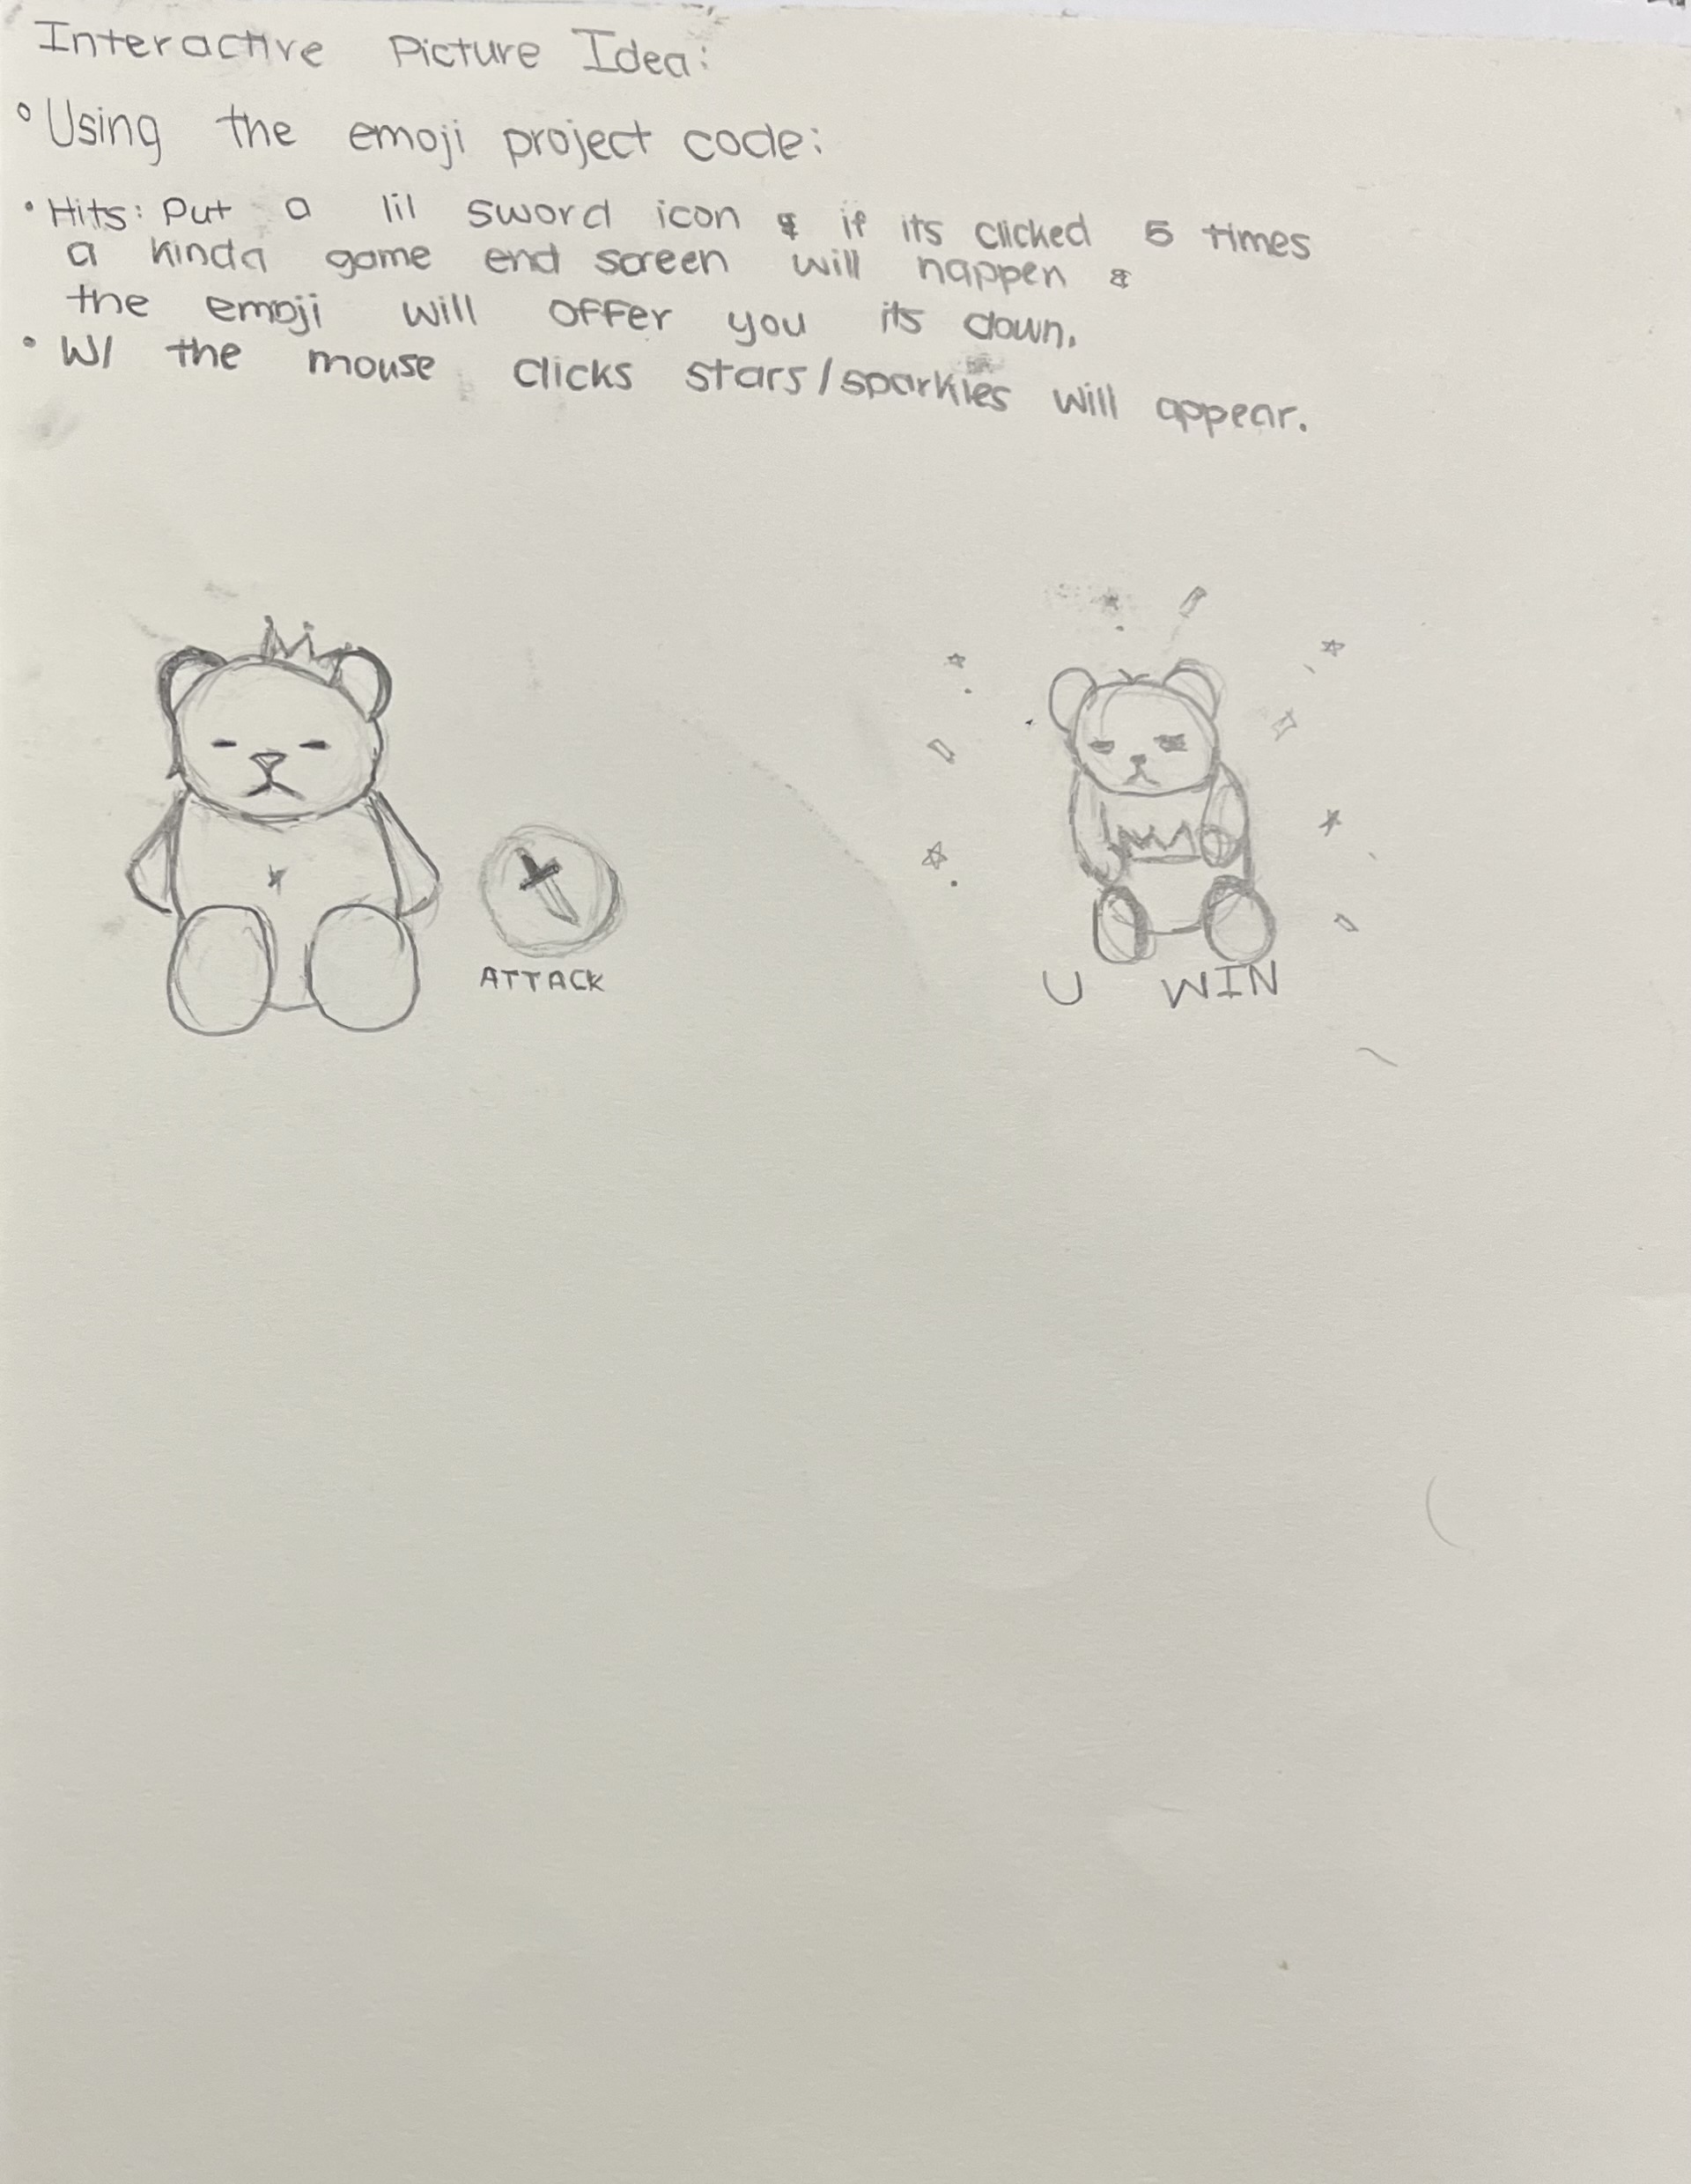 Interactive Picture Idea:
• Using the emoji project code:
• Hits: Put a lil sword icon & if its clicked 5 times
a kinda game end screen will happen &
the emoji will offer you its clown.
• W/ the mouse clicks stars/sparkles will appear.
ATTACK
U WIN